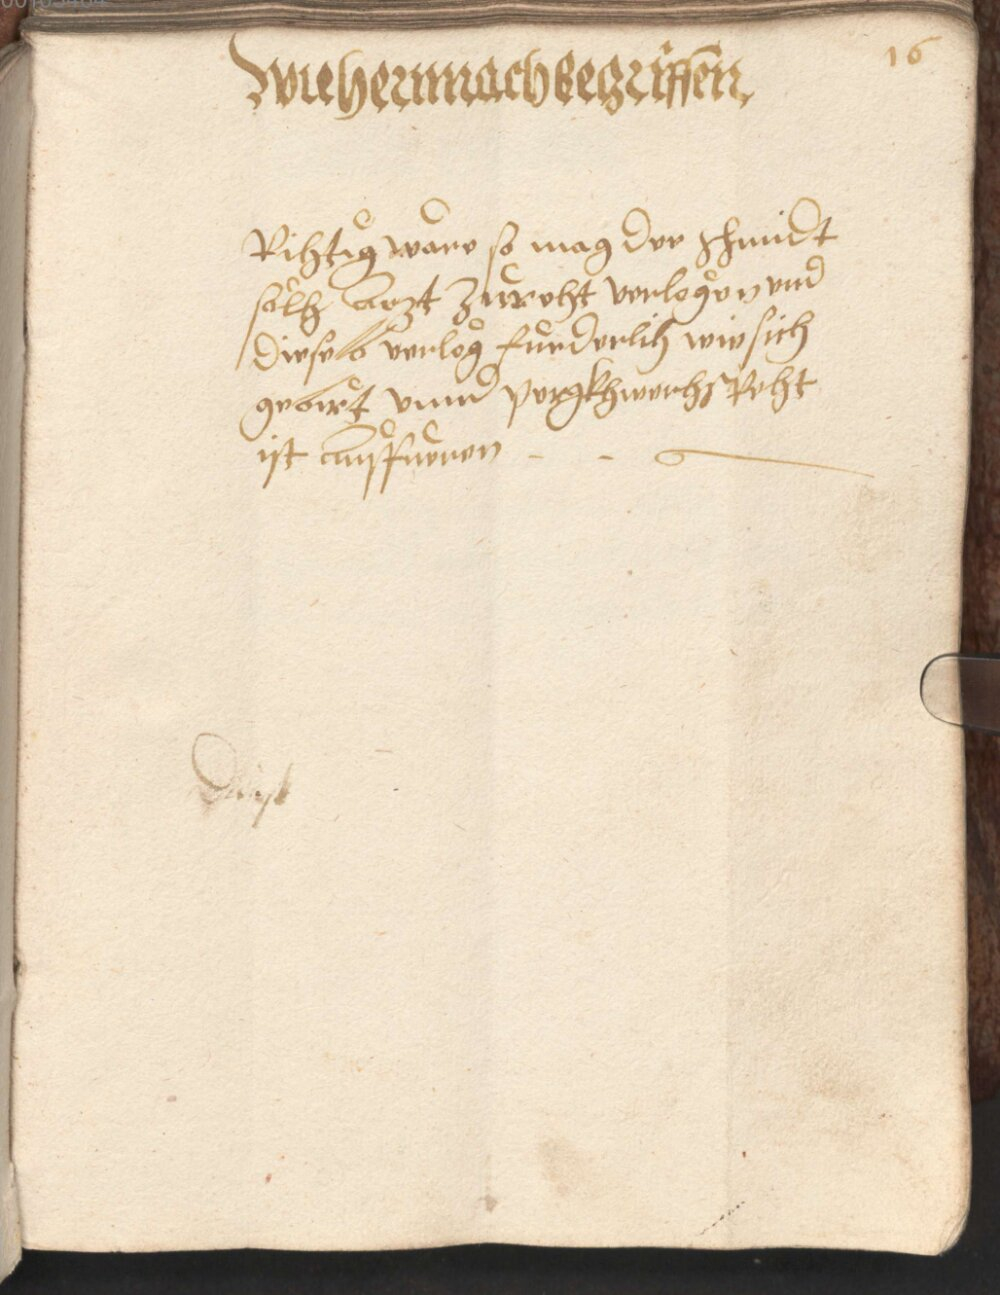 16
Wie hernnach begriffen
Richtig ware so mag der schmidt
sölh ärzt zurecht verlegen und
dieselb verleg furderlich wie sich
gebürt vnnd perkhwerchs Recht
ist aussfueren